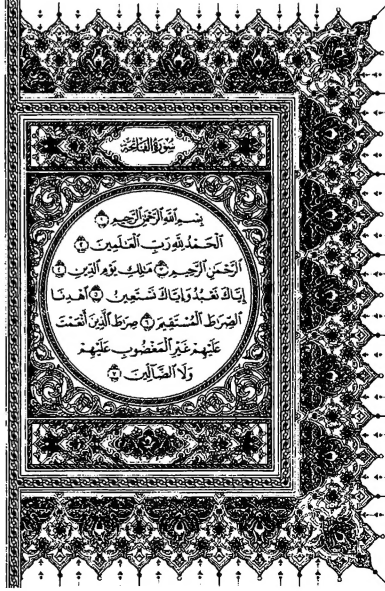 سورة الفاتحة
بِسْمِ اللَّهِ الرَّحْمَٰنِ الرَّحِيمِ ١
الْحَمْدُ لِلَّهِ رَبِّ الْعَٰلَمِينَ ٢
الرَّحْمَٰنِ الرَّحِيمِ ٣ مَٰلِكِ يَوْمِ الدِّينِ ٤
إِيَّاكَ نَعْبُدُ وَإِيَّاكَ نَسْتَعِينُ ٥ اهْدِنَا
الصِّرَٰطَ الْمُسْتَقِيمَ ٦ صِرَٰطَ الَّذِينَ أَنْعَمْتَ
عَلَيْهِمْ غَيْرِ الْمَغْضُوبِ عَلَيْهِمْ
وَلَا الضَّالِّينَ ٧